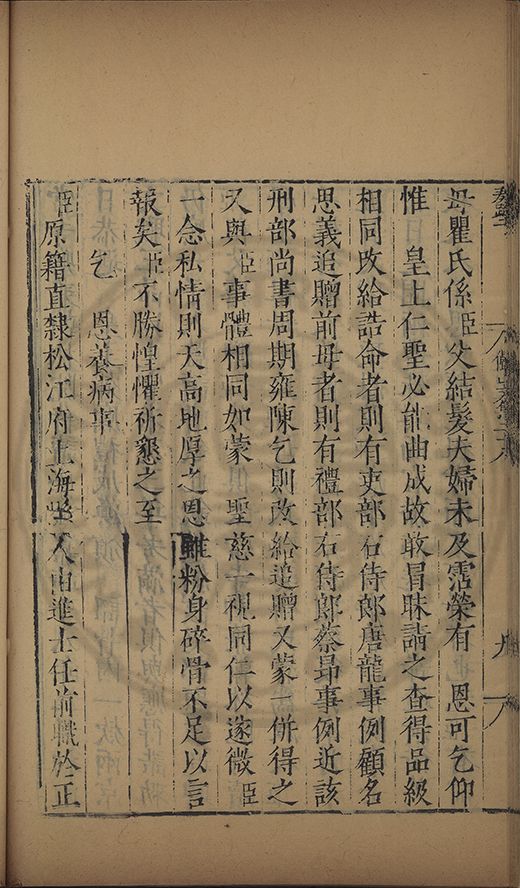 母瞿氏係臣父結髮夫婦未及霑榮有　恩可乞仰
惟　皇上仁聖必能曲成故敢冒昧請之查得品級
相同改給誥命者則有吏部右侍郎唐龍事例顧名
思義追贈前母者則有禮部右侍郎蔡昂事例近該
刑部尚書周期雍陳乞則改給追贈又蒙一併得之
又與臣事體相同如蒙　聖慈一視同仁以遂微臣
一念私情則天高地厚之恩雖粉身碎骨不足以言
報矣臣不勝惶懼祈懇之至
乞　恩養病事
臣原籍直隸松江府上海縣人由進士任前職於正